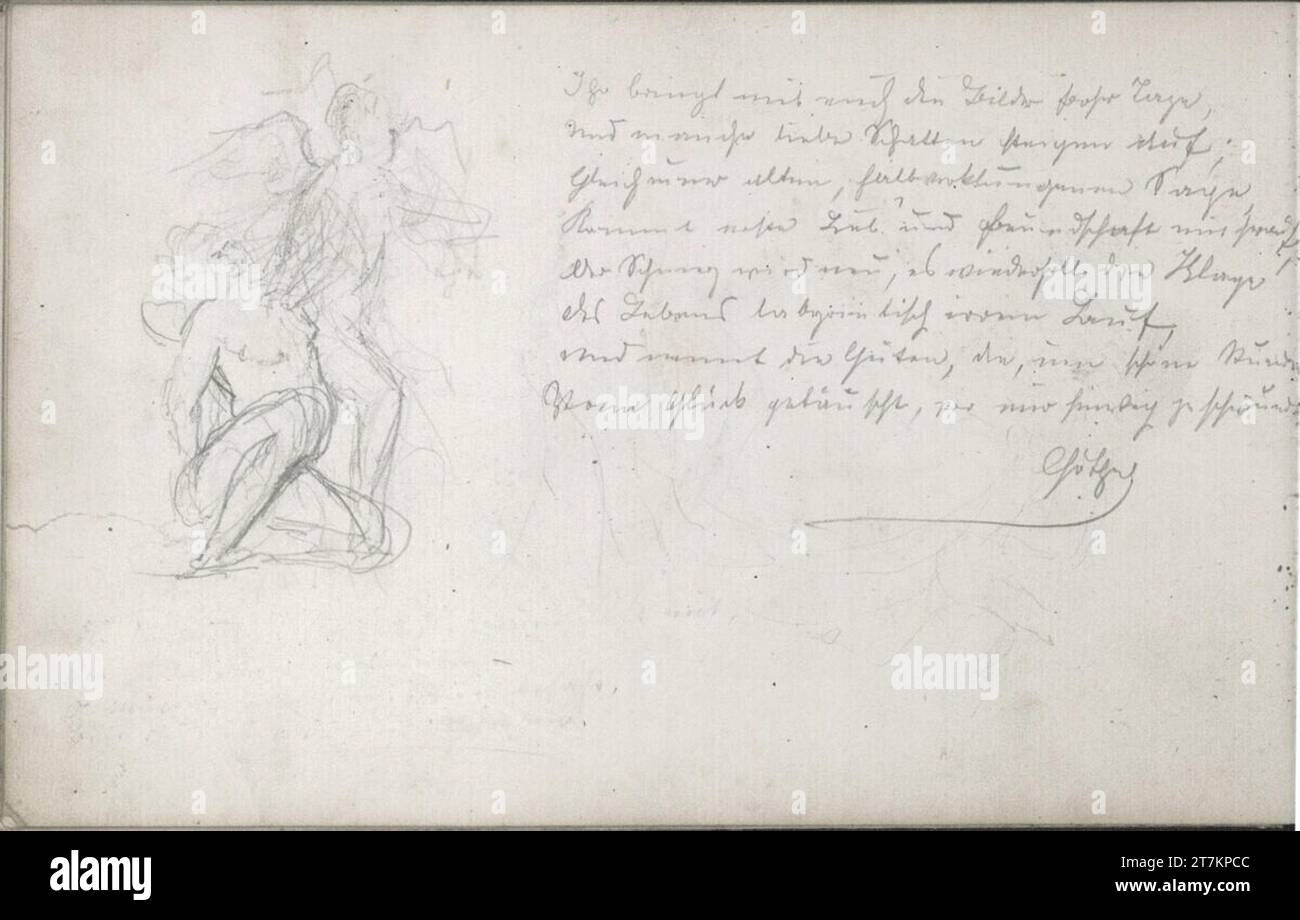 Ihr bringt mit euch die Bilder froher Tage,
Und manche liebe Schatten steigen auf;
Gleich einer alten, halbverklungenen Sage,
Kommt erste Lieb' und Freundschaft mit herauf;
Der Schmerz wird neu, es wiederholt die Klage
des Lebens labyrintisch irren Lauf,
und nennt die Guten, die, um schöne Stunden
Vom Glück getäuscht, vor mir hinweg geschwunden
Göthe
alamy
Image ID: 2T7KPCC
www.alamy.com